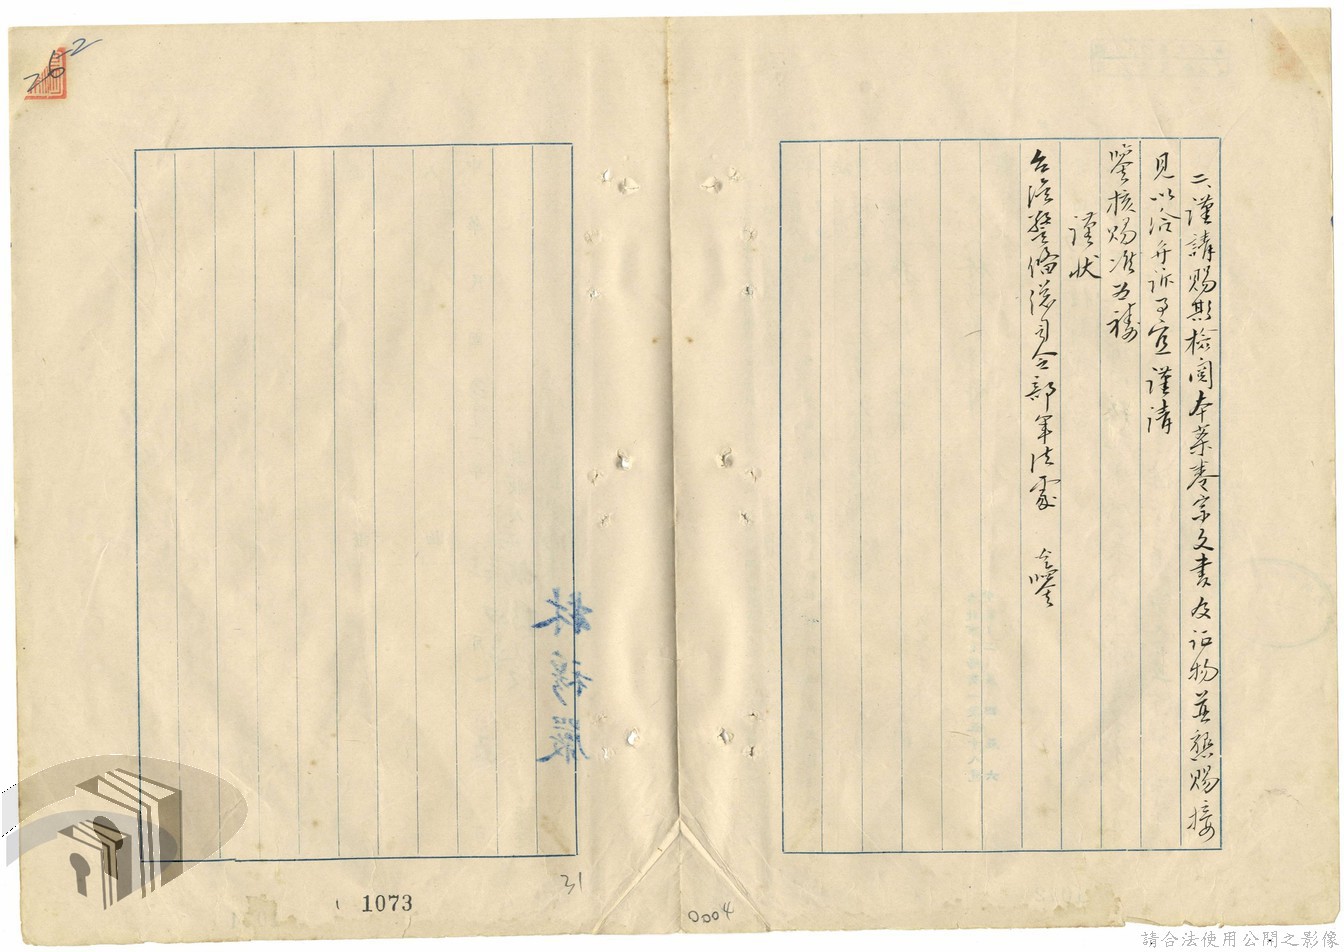 二、謹請賜期檢閱本案卷宗文書及证物並懇賜接
見以洽弁訴事宜謹請
鑒核賜准为禱
謹狀
台湾警備总司令部軍法處 公鑒
262
1073
31
0004
請合法使用公開之影像